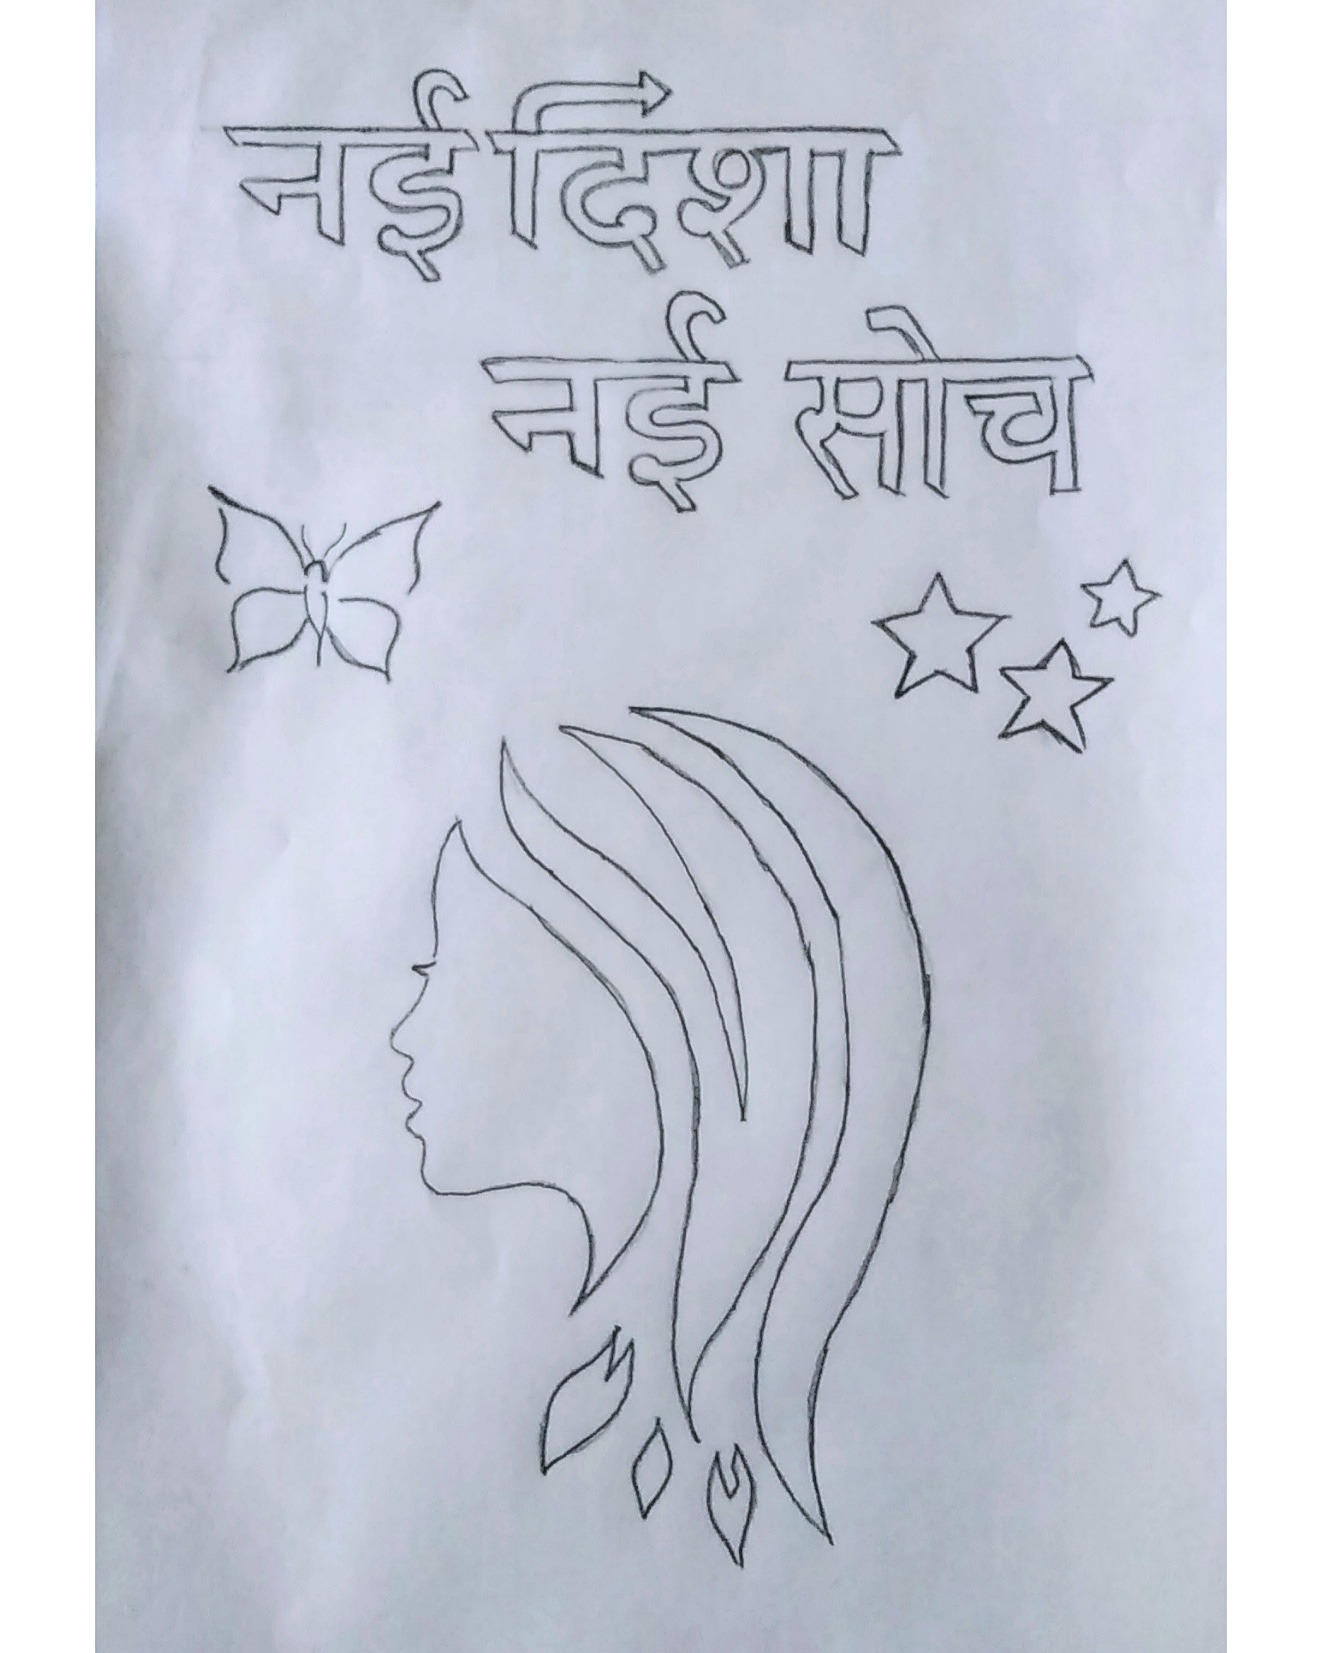 नई दिशा
नई सोच